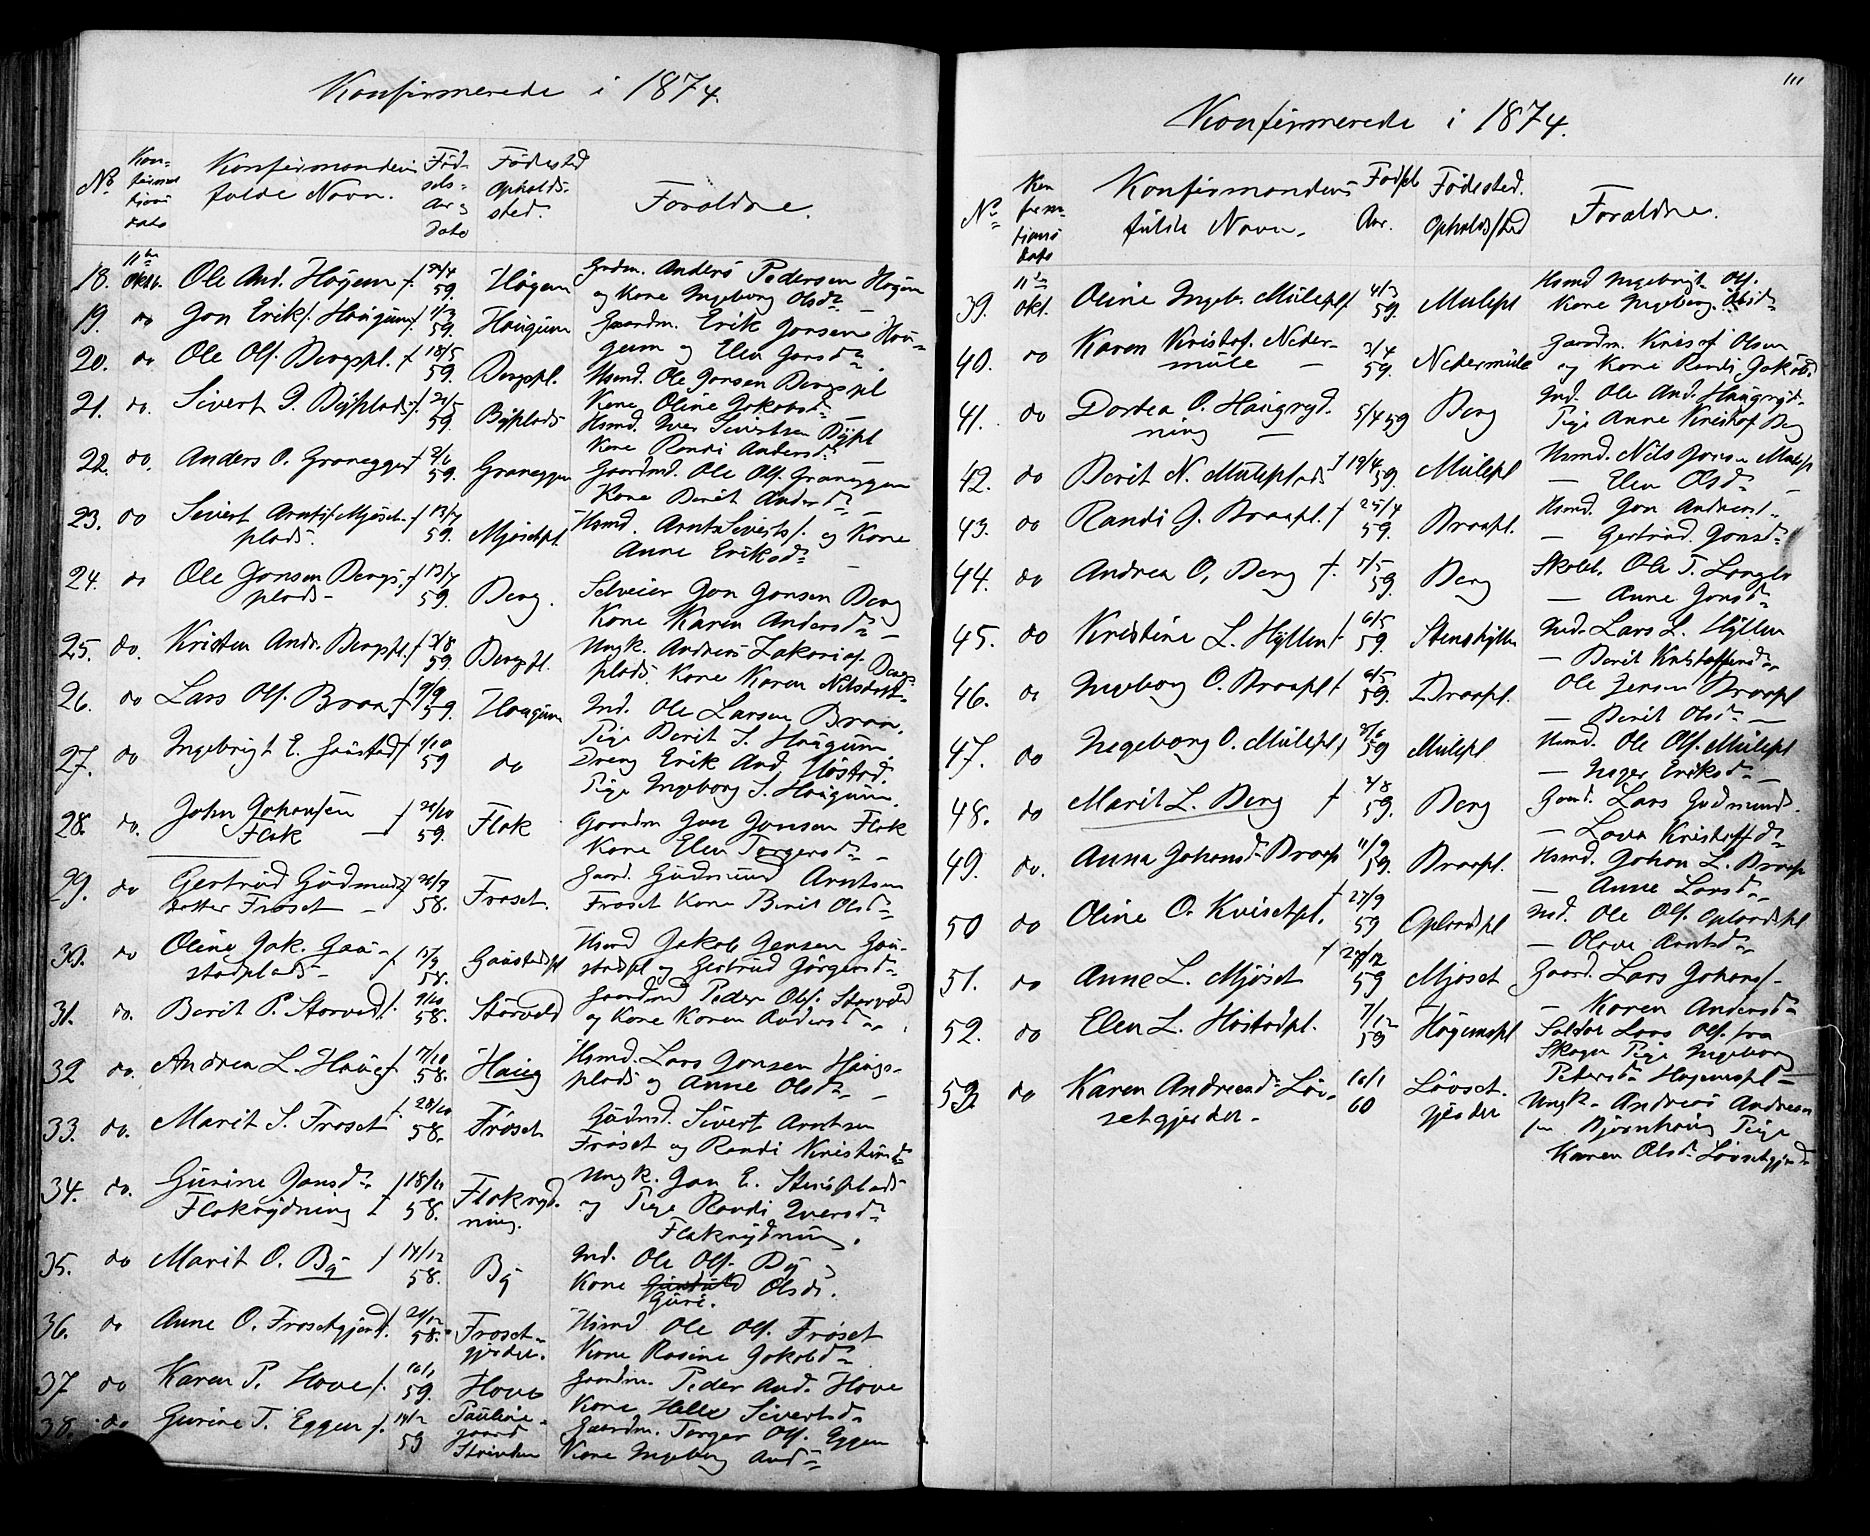 Konfirmerede i 1874.
No Kon-firma-tions dato Konfirmandens fulde Navn. Fød-sels-Aar og Dato Fødested Opholds-sted. Forældre.
18. 11te Oktb. Ole And. Høgem 59. Høgem Grdm. Anders Pedersen Høgem
og Kone Ingeborg Olsd.
19. do Jon Eriks. Haugum 1/3 59. Haugum Gaardm. Erik Jonsen Hau-
gum og Elen Jonsd.
20. do Ole Ols. Bergspl. 18/5 59. Bergspl. Husmd. Ole Jonsen Bergspl
Kone Oline Jakobsd.
21. do. Sivert I. Byplads 21/5 59. Byplads Husmd. Iver Sivertsen Bypl
Kone Randi Andersd.
22. do. Anders O. Graneggen 2/6 59. Graneggen Gaardmd. Ole Ols. Graneggen
Kone Berit Andersd.
23. do Sivert Arntss. Mjøset-plads. 13/7 59. Mjøsetpl. Husmd. Arnt Siverts. og Kone
Anne Eriksd.
24. do Ole Jonsen Bergs-plads 13/7 59. Berg. Selveier Jon Jonsen Berg
Kone Karen Andersd.
25. do. Kristen Andr. Bergspl. 3/8 59. Bergspl. Ungk. Andreas Zakarias. Bergs-
plads. Kone Karen Nilsdatt.
26. do Lars Ols. Braa 9/9 59. Haugum Ind. Ole Larsen Braa.
Pige Berit S. Haugum
27. do Ingebrigt E. Høstad 1/10 59 do Dreng Erik And. Høstad.
Pige Ingeborg S. Haugum.
28. do. John Johansen Flak 20/10 59. Flak Gaardm Jon Jonsen Flak
Kone Elen Torgersd.
29. do Gertrud Gudmunds-datter Frøset 20/7 58. Frøset. Gaard. Gudmund Arntsen
Frøset Kone Berit Olsd.
30. do Oline Jak. Gau-stadplads 58. Gaustadpl Husmd Jakob Jensen Gau-
stadpl og Gertrud Jørgensd.
31. do. Berit P. Storvold. 9/10 58. Storvold Gaardmd Peder Ols. Storvold
og Kone Karen Andersd.
32 do. Andrea L. Haug 7/10 58. Haug Husmd. Lars Jonsen Haugs-
plads og Anne Olsd.
33. do. Marit S. Frøset 28/10 58. Frøset Gudmd. Sivert Arntsen
Frøset og Randi Kristensd.
34. do. Gurine Jonsd. Flakrydning 18/11 58. Flakryd-ning. Ungk. Jon E. Stensplads
og Pige Randi Iversd.
Flakrydning.
35. do Marit O. By 14/12 58. By Ind. Ole Ols. By
Kone Guri. Olsd.
36. do Anne O. Frøsetgjerd. 21/12 58. Frøset-gjerdet. Husmd Ole Ols. Frøset
Kone Rosine Jakobd.
37 do Karen P. Hove 16/1 59. Hove Gaardm. Peder And. Hove
Kone Helle Sivertsd.
38. do Gurine T. Eggen 59 Pauline-gaard Strinden Gaardm. Torger Ols. Eggen
Kone Ingeborg And
111
Konfirmerede i 1874.
No Kon firma-tions dato Konfirmandens fulde Navn. Fødsels Aar. Fødested. Opholdssted Forældre.
39. 11te Okt. Oline Ingebr. Mulepl 4/3 59. Mulepl Husmd Ingebrigt Ols.
Kone Ingeborg Olsd.
40. do Karen Kristof. Neder-mule 3/4 59. Nedermule Gaardm. Kristof Olsen
og Kone Randi Jakobsd
41. do Dortea O. Haugryd-ning 5/4 59 Berg Ind. Ole And. Haugryd.
Pige Anne Kristof Berg
42. do Berit N. Muleplads 19/4 59. Mulepl Husmd. Nils Jonsen Mulepl
— Elen Olsd.
43. do Randi J. Braapl. 25/4 59. Braapl. Husmd. Jon Andreas.
— Gertrud Jonsd.
44. do Andrea O. Berg 7/5 59. Berg Skolel. Ole T. Langlo
— Anne Jonsd.
45. do Kristine L. Hyllen 6/5 59. Stenshyllen Ind. Lars L. Hyllen
— Berit Kristoffersd.
46. do Ingeborg O. Braapl 6/5 59. Braapl. Ole Jensen Braapl
— Berit Olsd.
47. do Ingeborg O. Mulepl 2/6 59 Mulepl Husmd. Ole Ols. Mulepl
— Inger Eriksd.
48. do Marit L. Berg 2/8 59. Berg Gaard. Lars Gudmunds.
— Lava Kristoffd.
49. do. Anna Johansd. Braapl 11/9 59. Braapl. Husmd. Johan L. Braapl
— Anne Larsd.
50 do Oline O. Kvisetpl. 27/9 59 Oplandspl Ind. Ole Ols. Oplandspl
— Olava Arntsd.
51. do Anne L. Mjøset 59 Mjøset Gaard. Lars Johans.
— Karen Andersd.
52. do Elen L. Høstadpl. 7/12 59 Høgemspl Soldat Lars Ols. fra
Skogn Pige Ingeborg
Petersd. Høgemspl
53. do Karen Andreasd. Løv-setgjerdet. 16/1 60 Løvset-gjerdet Ungk. Andreas Andresen
fra Bjørnhaug Pige
Karen Olsd. Løvsetgjerd